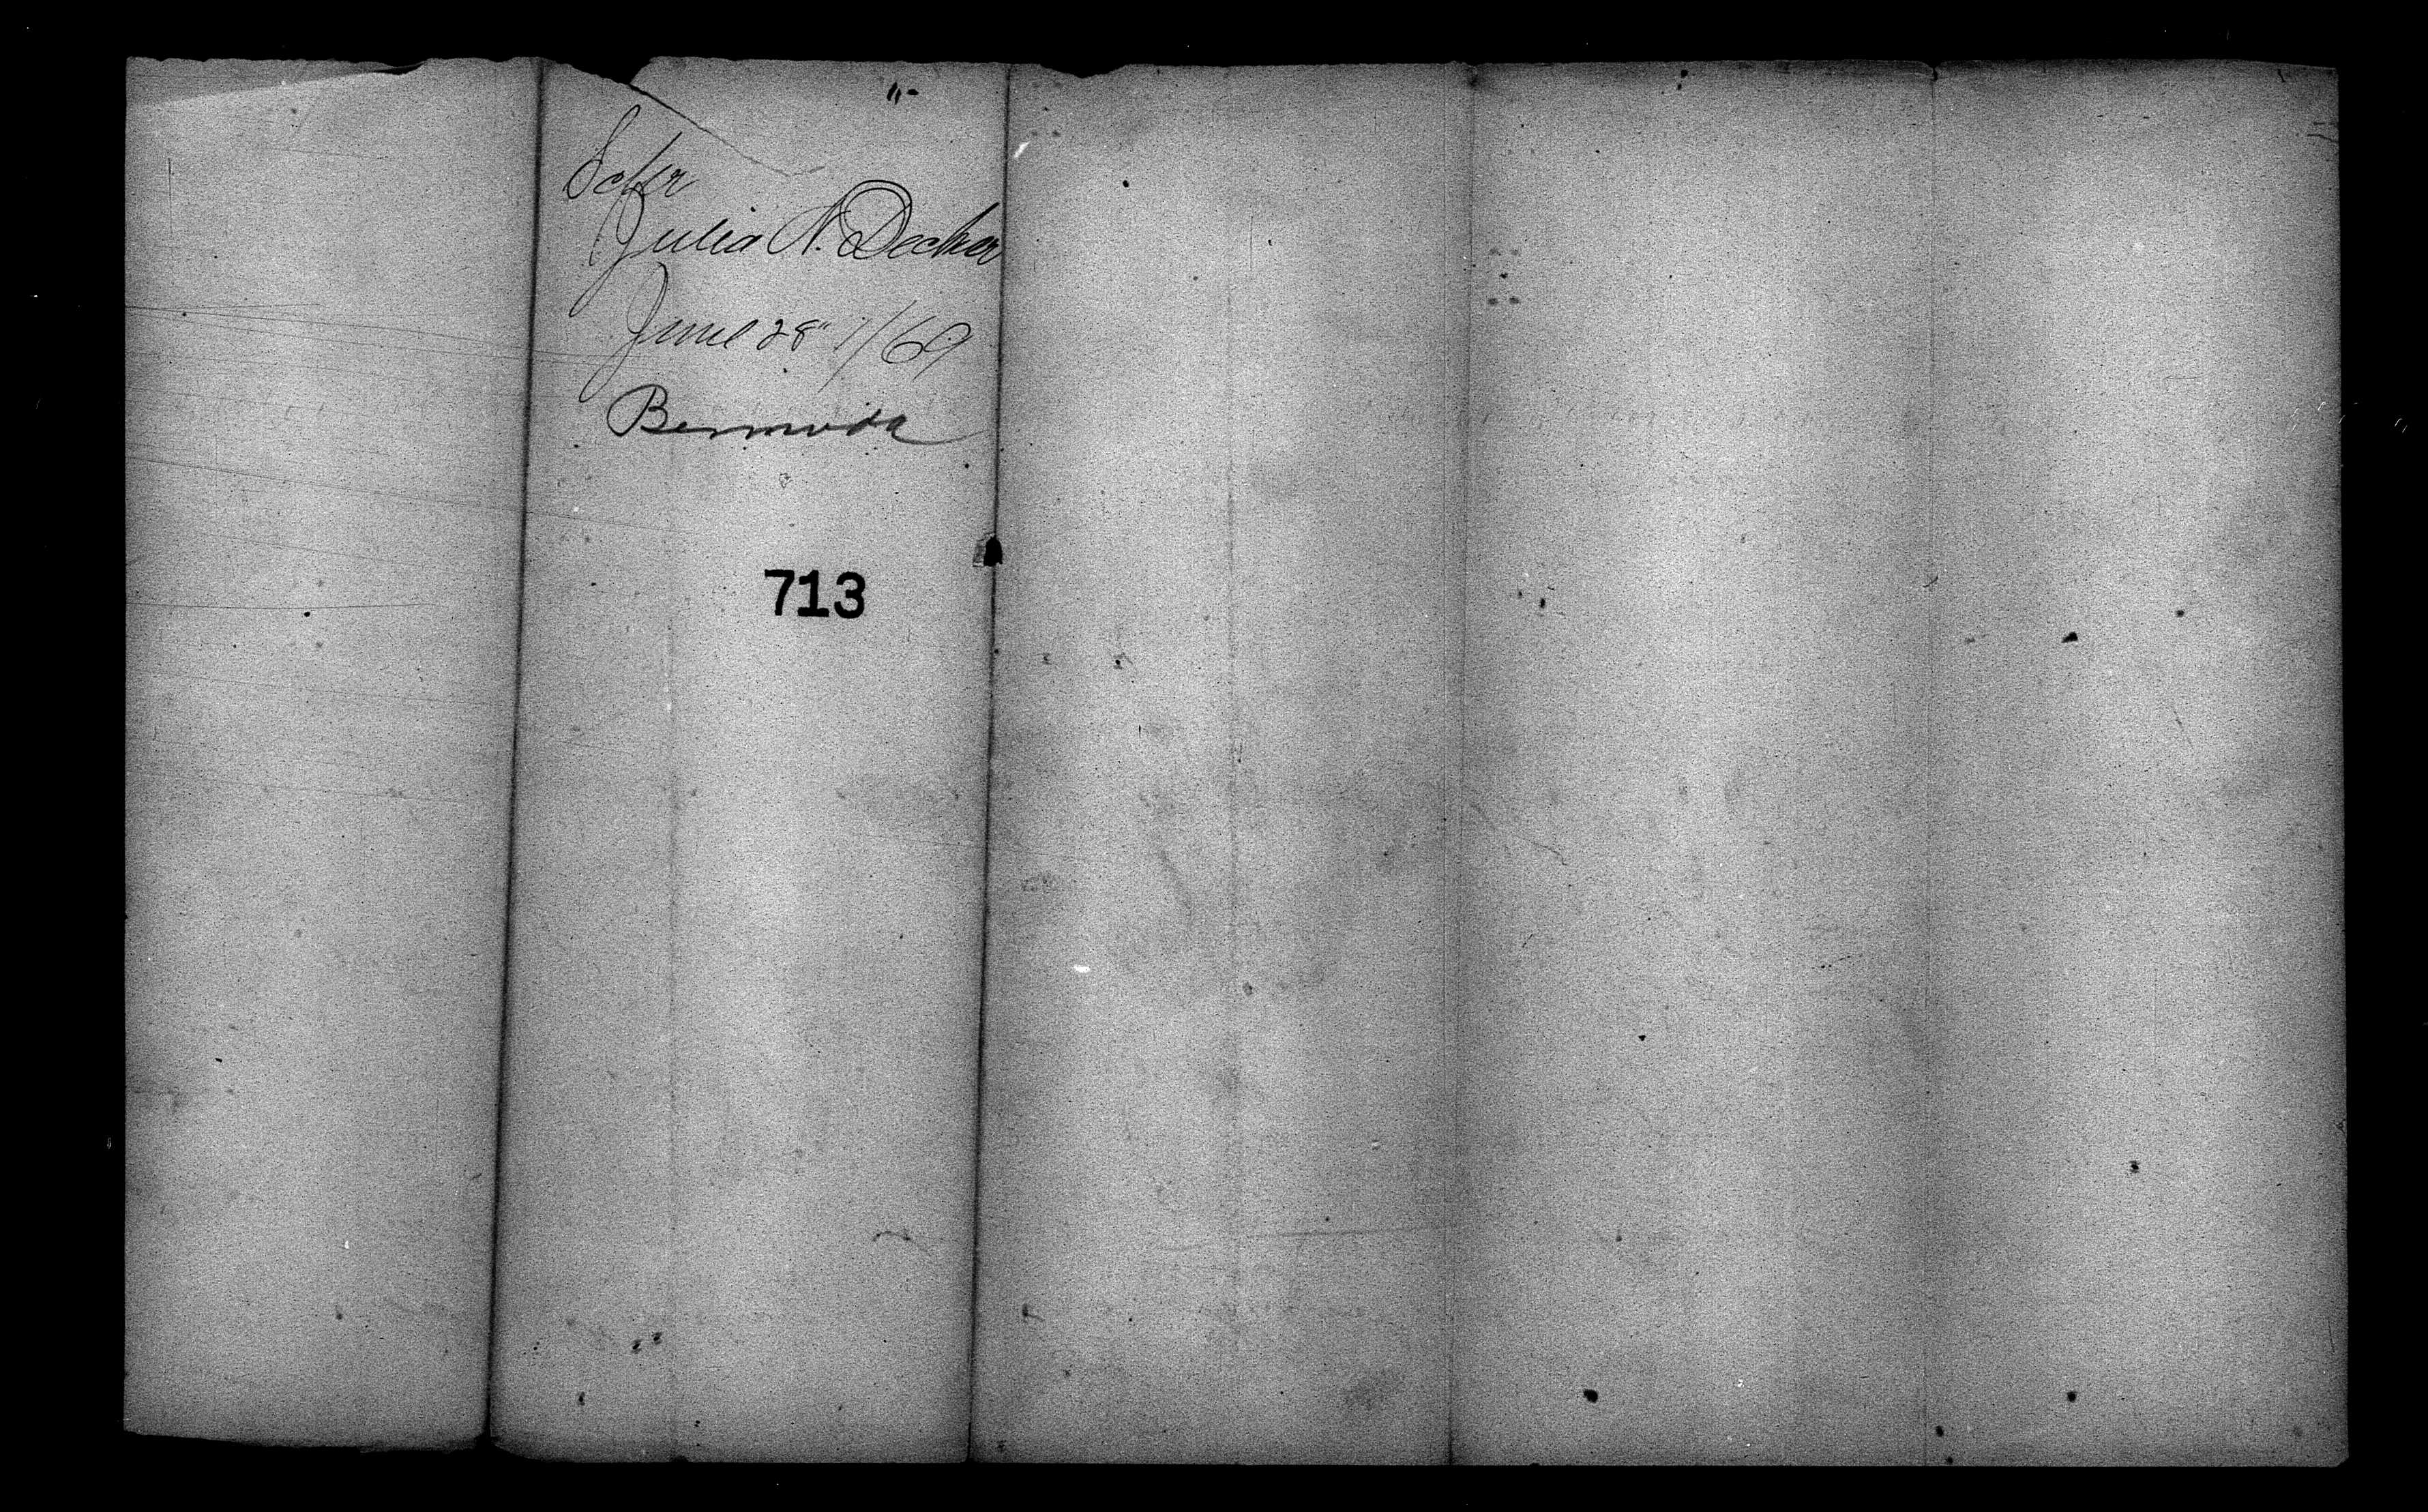 Schr
Julia N. Decker
June 28" /69
Bermuda
713